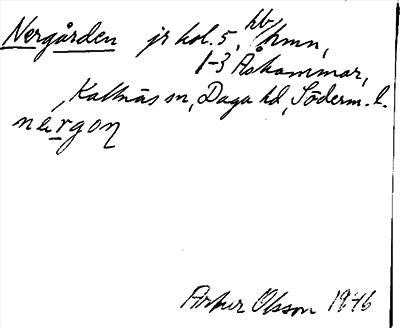 Nergården jr kol. 5, hb/hmn,
1-3 Åskammar,
Kattnäs sn, Daga hd, Söderm. l.
nęrgoɳ
Artur Olsson 1946